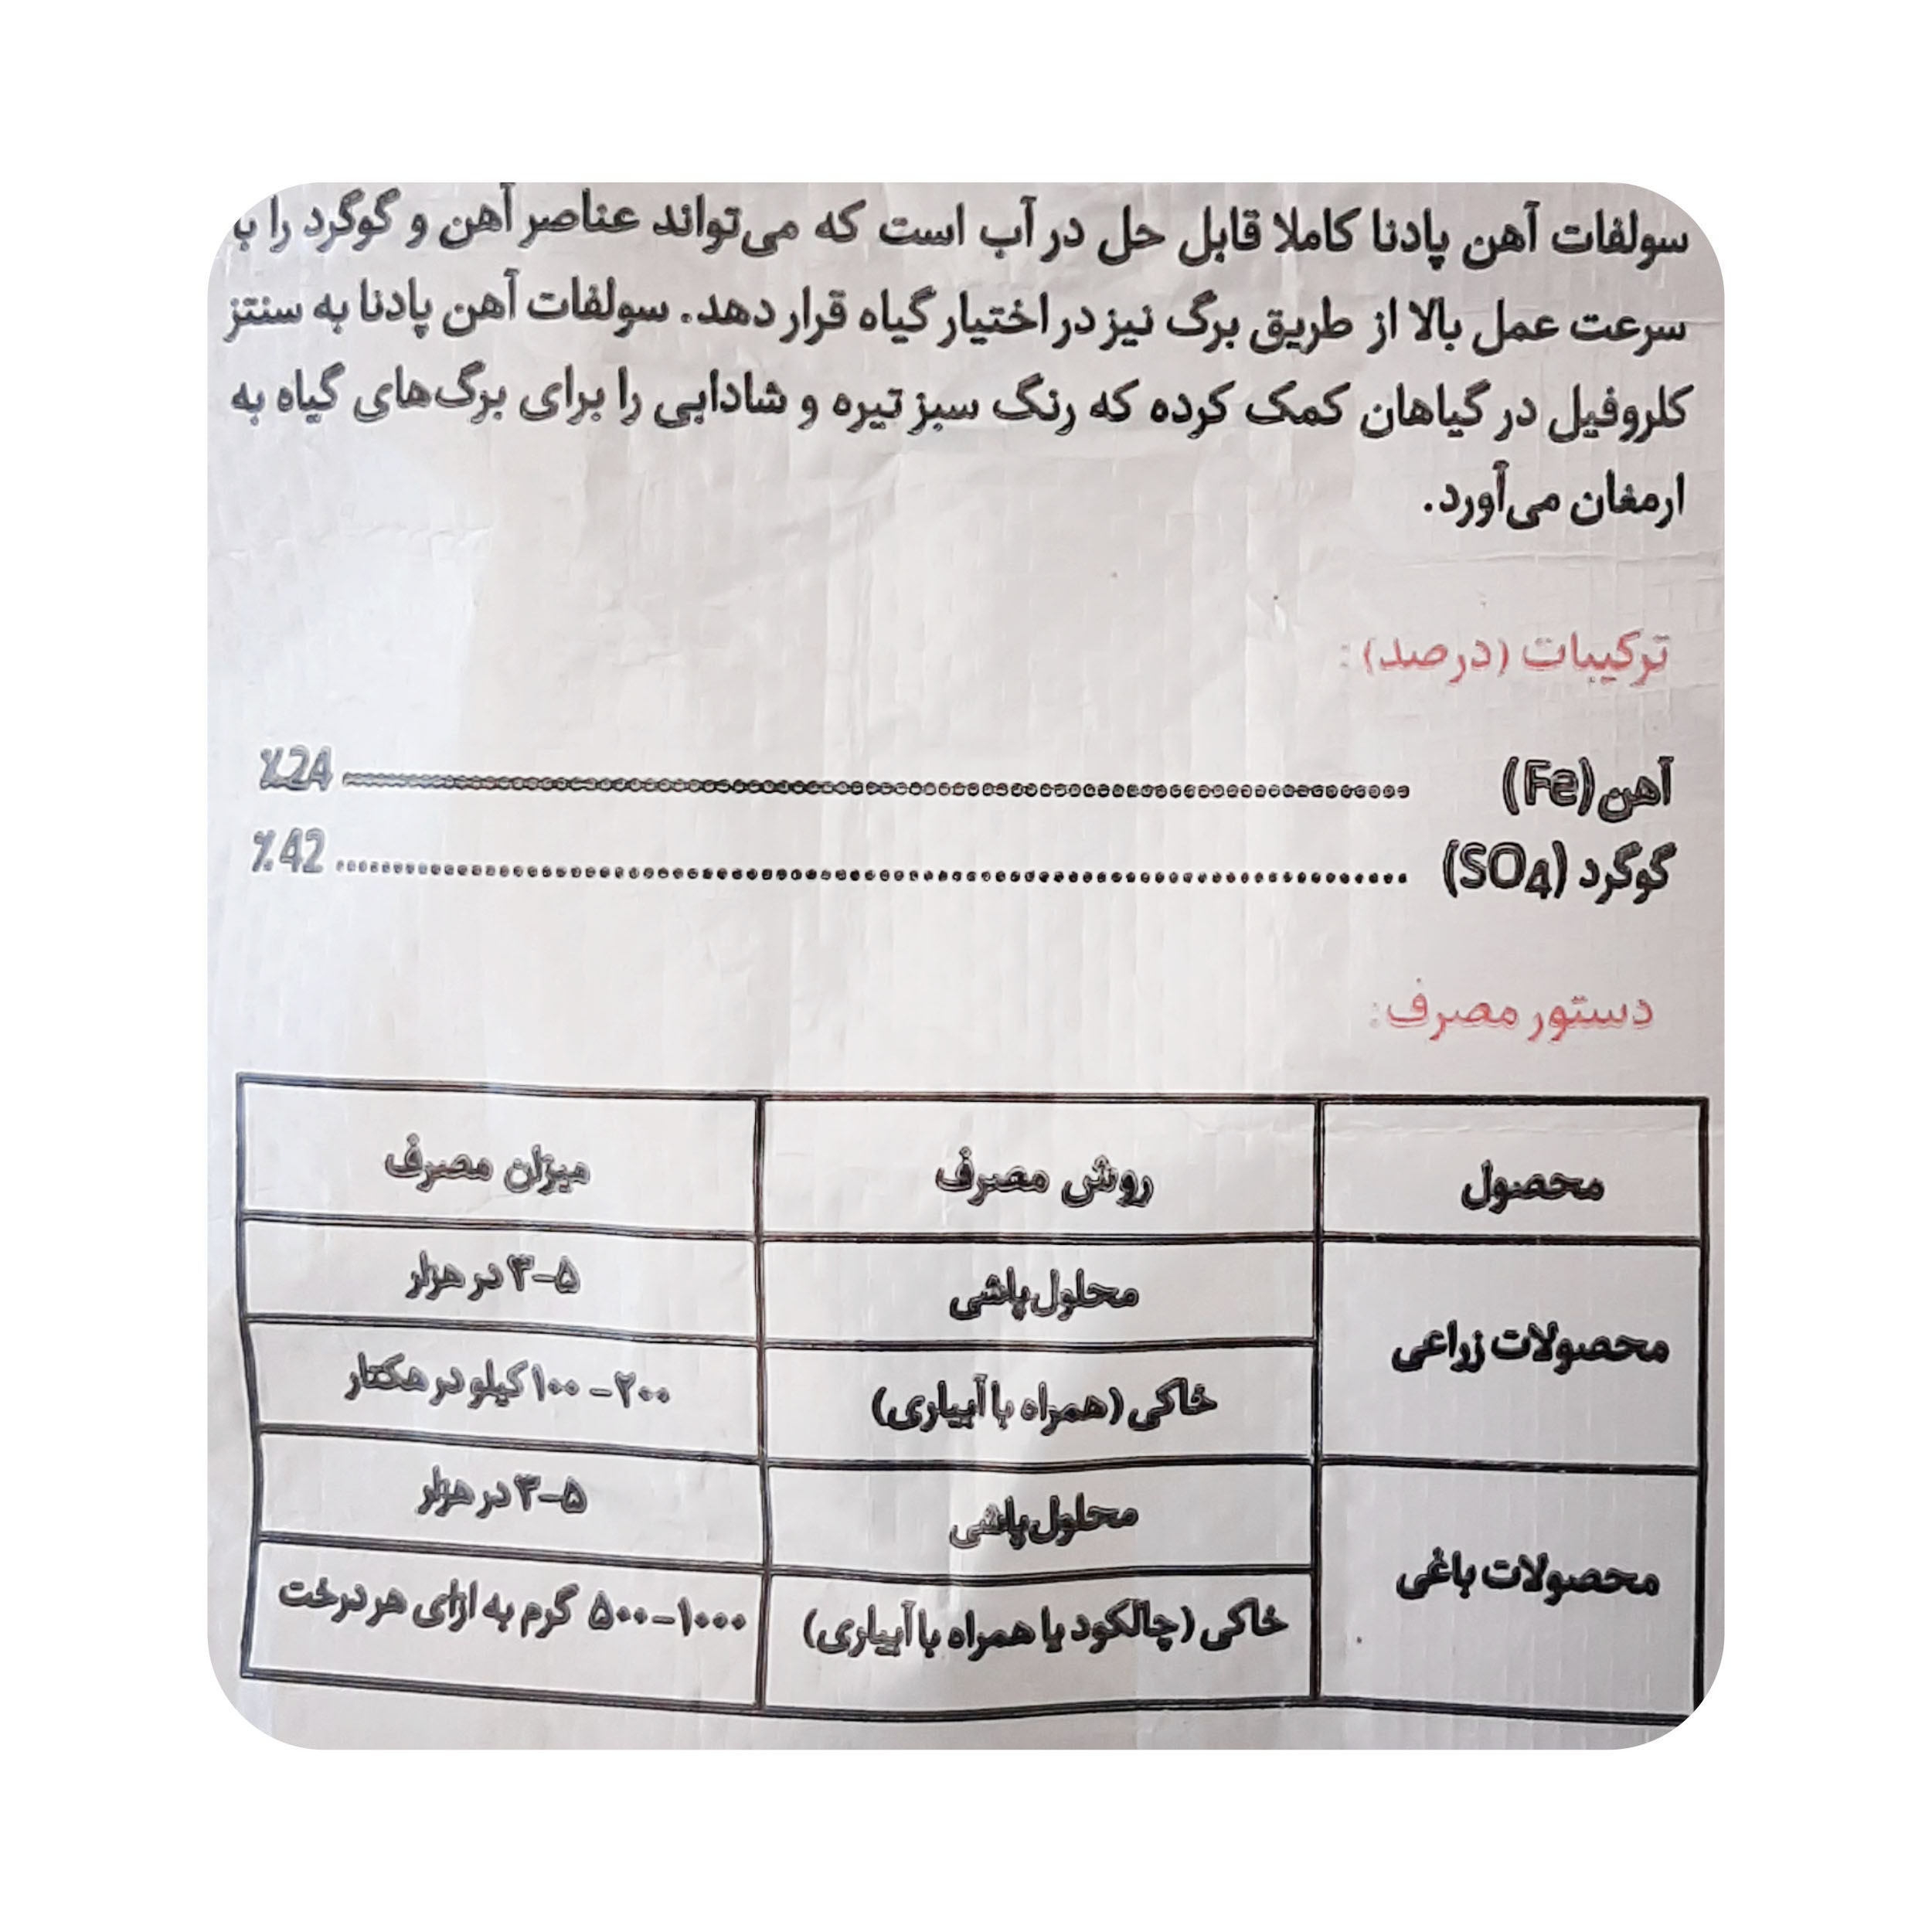 سولفات آهن پادنا کاملا قابل حل در آب است که می‌تواند عناصر آهن و گوگرد را با
سرعت عمل بالا از طریق برگ نیز در اختیار گیاه قرار دهد. سولفات آهن پادنا به سنتز
کلروفیل در گیاهان کمک کرده که رنگ سبز تیره و شادابی را برای برگ‌های گیاه به
ارمغان می‌آورد.
ترکیبات (درصد):
آهن(Fe) ........................ %24
گوگرد (SO4) ........................ %42
دستور مصرف:
محصول روش مصرف میزان مصرف
محصولات زراعی محلول‌پاشی ۳-۵ در هزار
خاکی (همراه با آبیاری) ۱۰۰-۲۰۰ کیلو در هکتار
محصولات باغی محلول‌پاشی ۳-۵ در هزار
خاکی (چالکود یا همراه با آبیاری) ۵۰۰-۱۰۰۰ گرم به ازای هر درخت